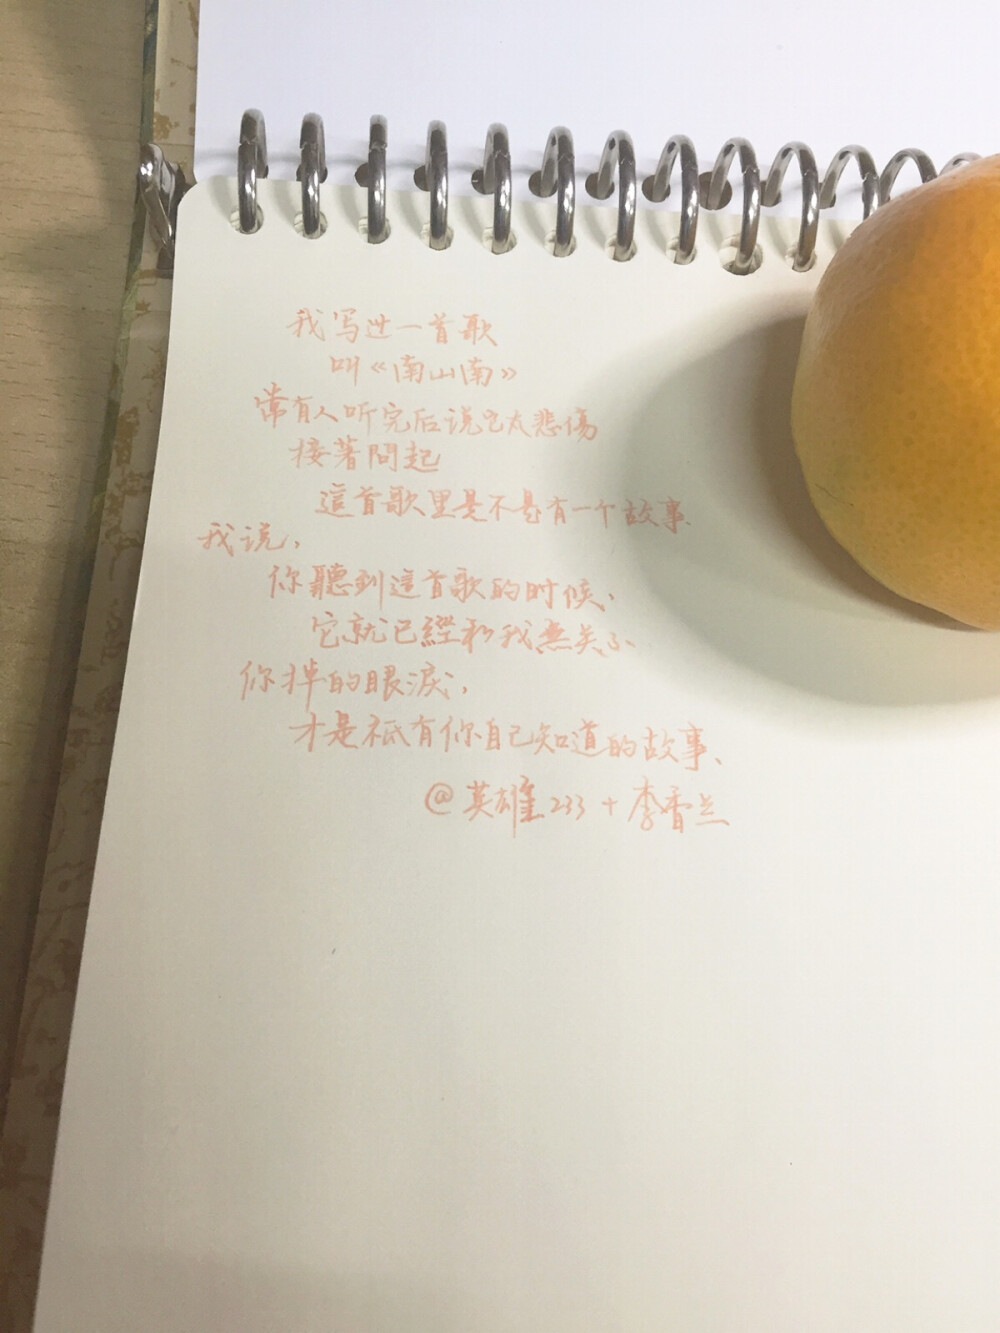 我写过一首歌
叫《南山南》
常有人听完后说它太悲伤
接著問起
這首歌里是不是有一个故事、
我说，
你聽到這首歌的时候、
它就已經和我無关了、
你掉的眼淚，
才是祇有你自己知道的故事、
@英雄233+李香兰